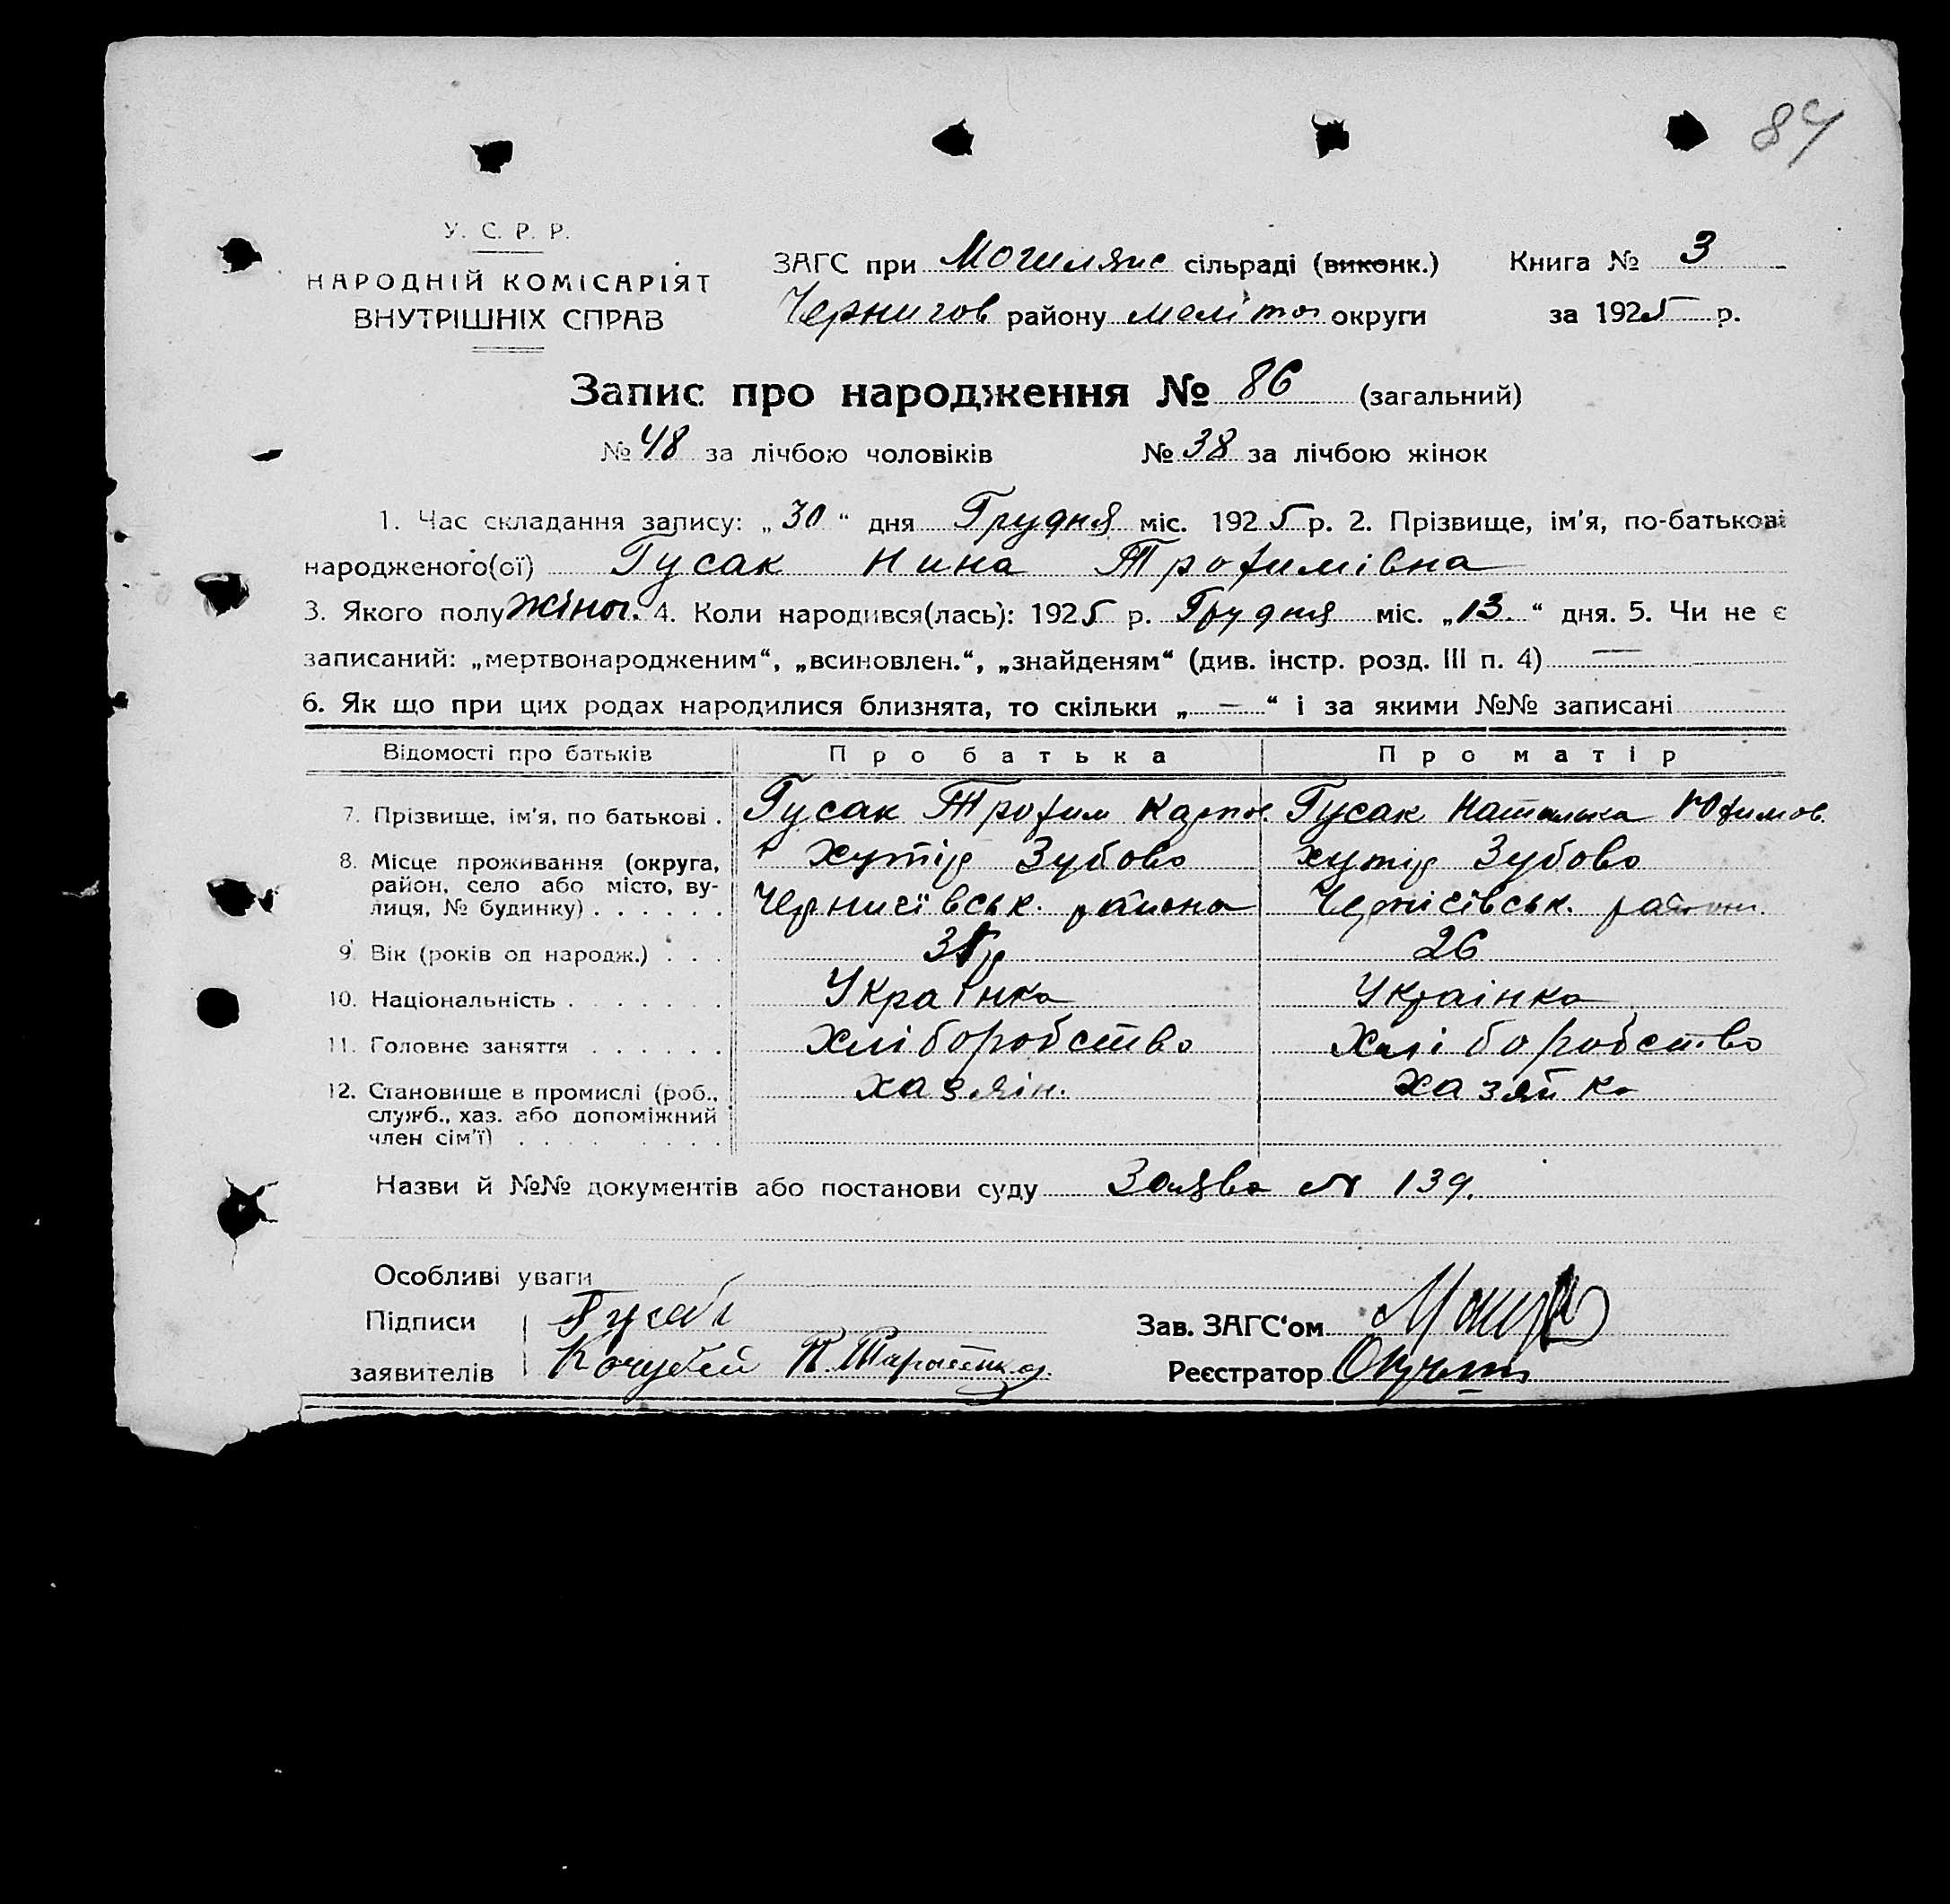 84
У. С. Р. Р.
НАРОДНІЙ КОМІСАРІЯТ
ВНУТРІШНІХ СПРАВ
ЗАГС при Могилянс сільраді (виконк.)
Чернигов району меліто округи
Книга № 3
за 1925 р.
Запис про народження № 86 (загальний)
№ 48 за лічбою чоловіків № 38 за лічбою жінок
1. Час складання запису: „30“ дня Грудня міс. 1925 р. 2. Прізвище, ім'я, по-батькові
народженого(ої) Гусак Нина Трофимівна
3. Якого полу жіноч. 4. Коли народився(лась): 1925 р. Грудня міс. „13.“ дня. 5. Чи не є
записаний: „мертвонародженим“, „всиновлен.“, „знайденям“ (див. інстр. розд. III п. 4) —
6. Як що при цих родах народилися близнята, то скільки „ — “ і за якими №№ записані
Відомості про батьків Про батька Про матір
7. Прізвище, ім'я, по батькові . Гусак Трофим Карпов. Гусак Наталька Юфимов.
8. Місце проживання (округа, хутір Зубово хутір Зубово
район, село або місто, ву-
лиця, № будинку) . . . . . . Чернигівськ. района Чернігівськ. района.
9. Вік (років од народж.) . . . 26
10. Національність . . . . . . . Українка Украінка
11. Головне заняття . . . . . . Хліборобство Хліборобство
12. Становище в промислі (роб., хазяін. хазяйка
служб., хаз. або допоміжний
член сім'ї) . . . . . . . . .
Назви й №№ документів або постанови суду Заява № 139.
Особливі уваги
Підписи Гусак Зав. ЗАГС'ом
заявителів Кочубей П. Реєстратор